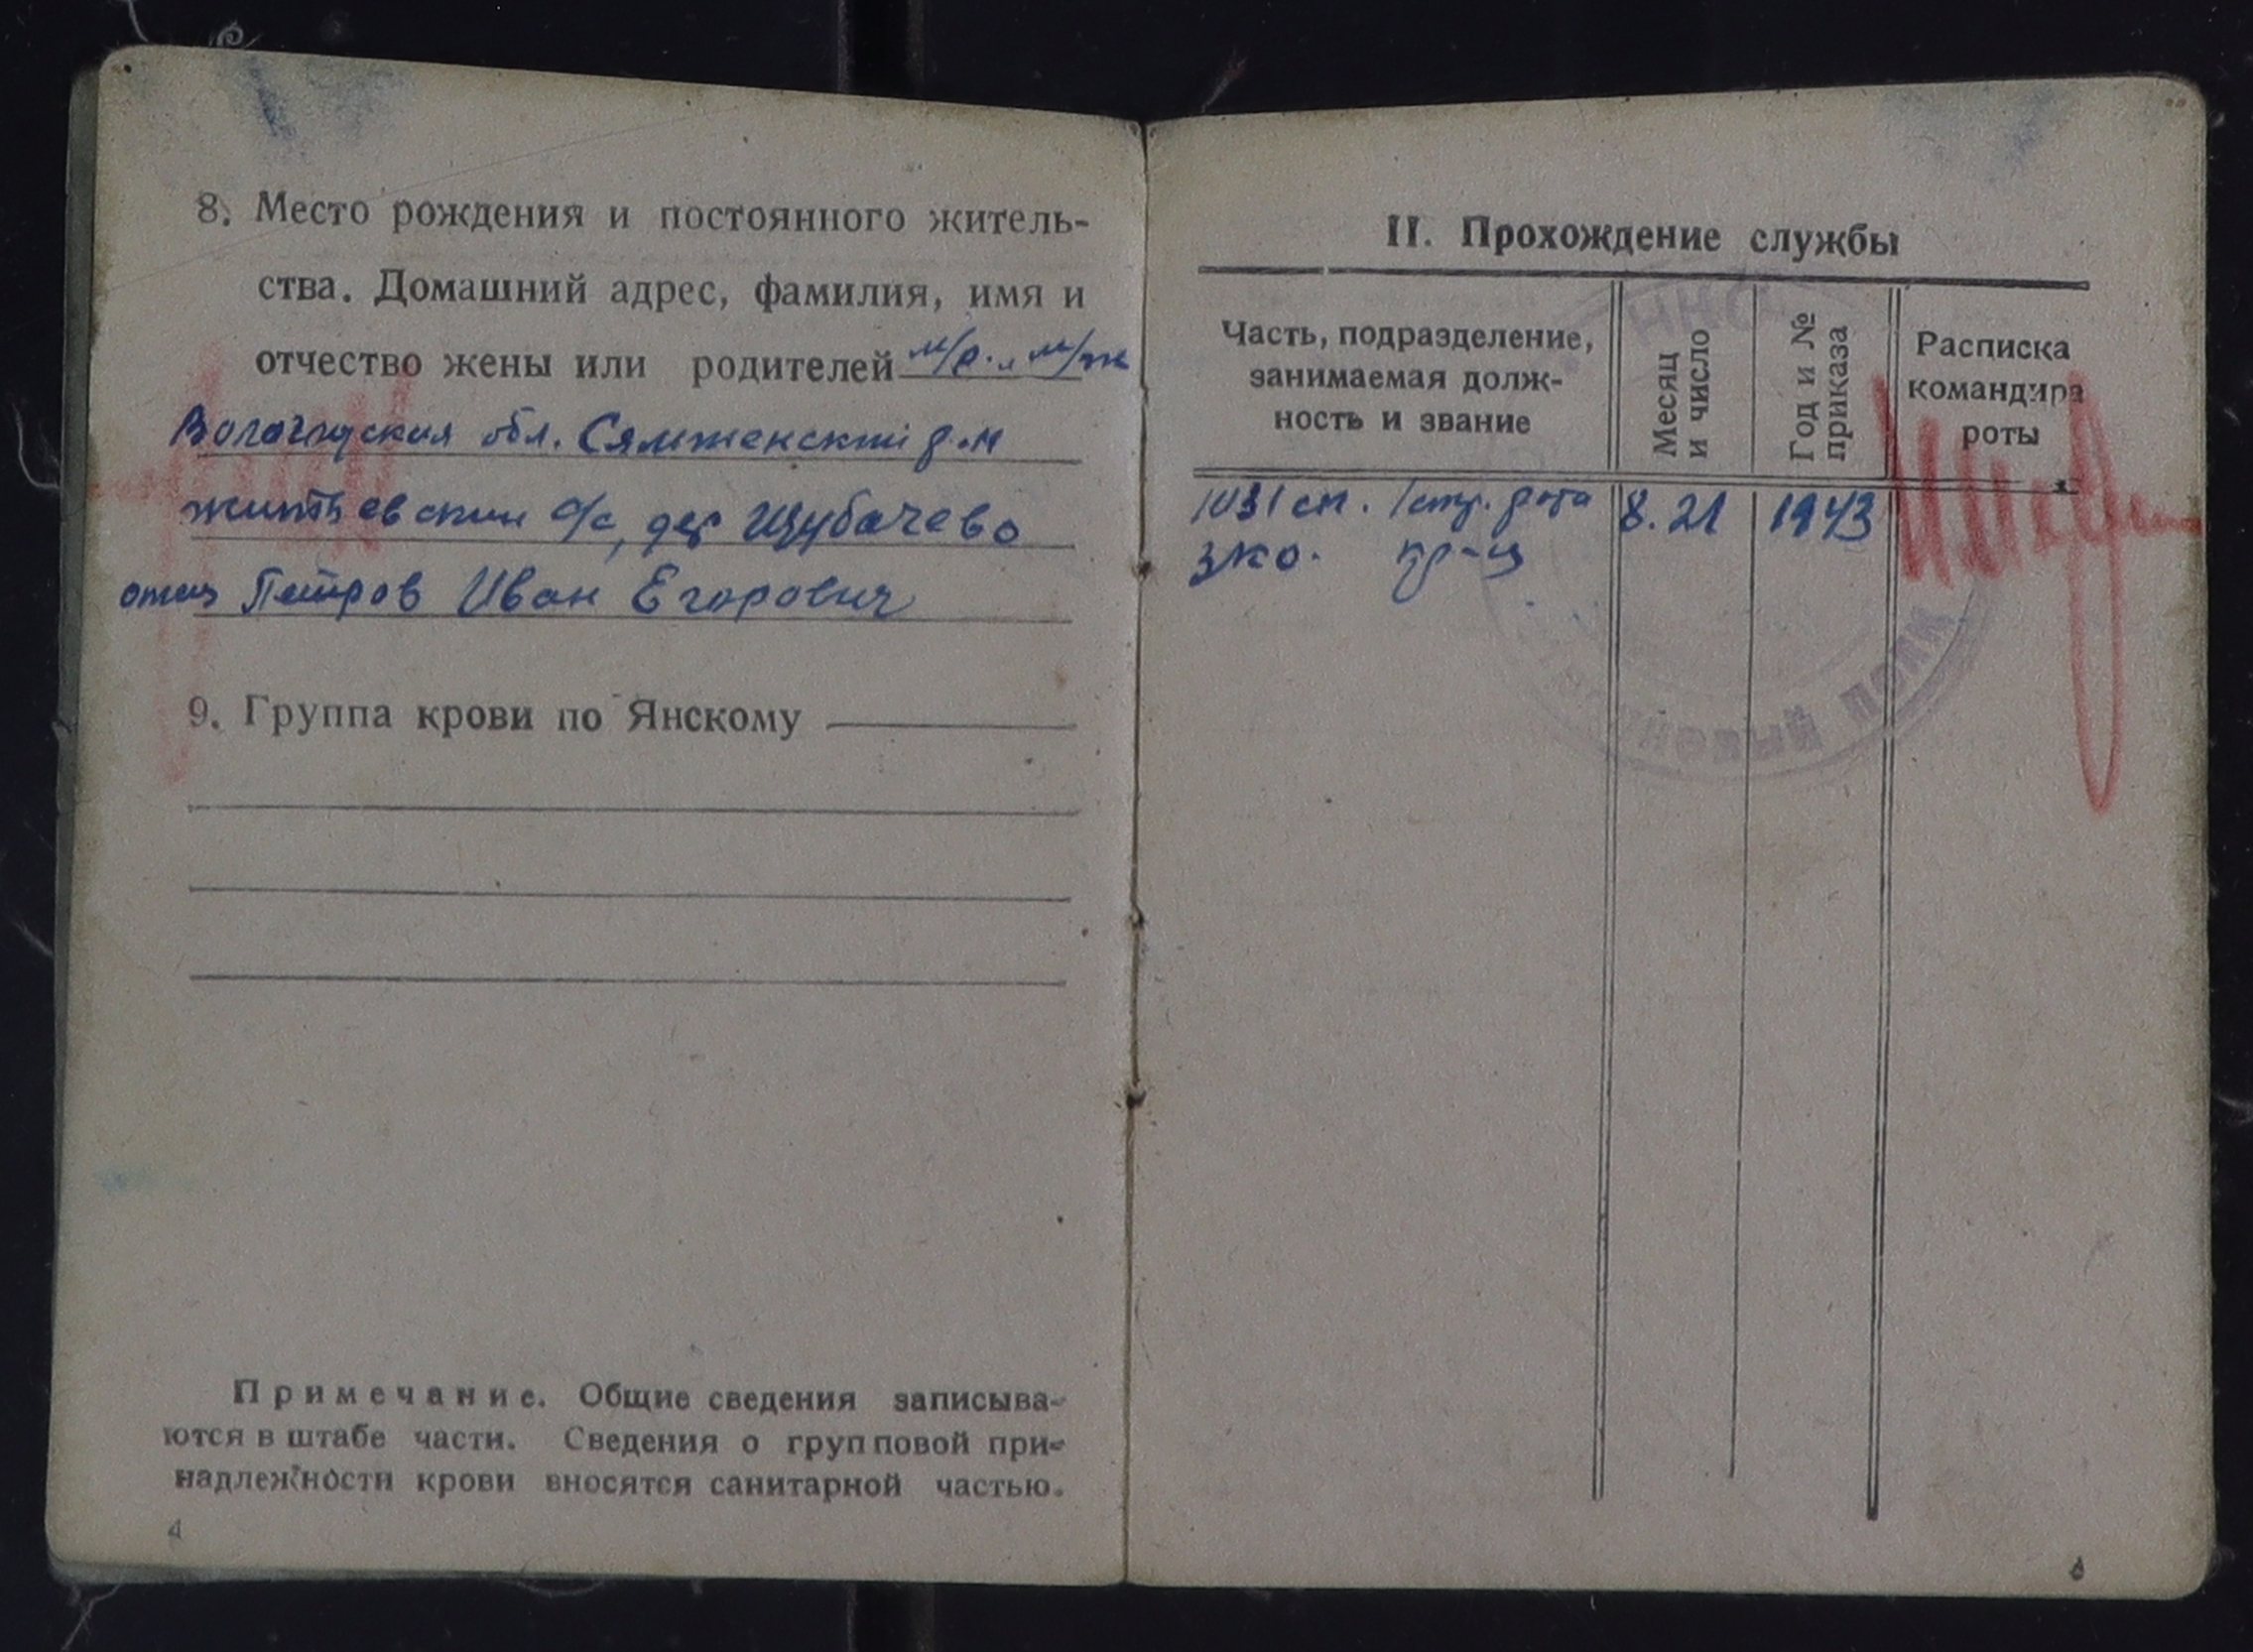 8. Место рождения и постоянного житель-
ства. Домашний адрес, фамилия, имя и
отчество жены или родителей м/р. и м/ж
Вологодская обл. Сямженский р-н
житьевский с/с, дер Шубачево
отец Петров Иван Егорович
9. Группа крови по Янскому
Примечание. Общие сведения записыва-
ются в штабе части. Сведения о групповой при-
надлежности крови вносятся санитарной частью.
4
II. Прохождение службы
Часть, подразделение,
занимаемая долж-
ность и звание
Месяц
и число
Год и №
приказа
Расписка
командира
роты
1031 сп. 1 стр. рота 8.21 1943
кр-ц
НКО
полк